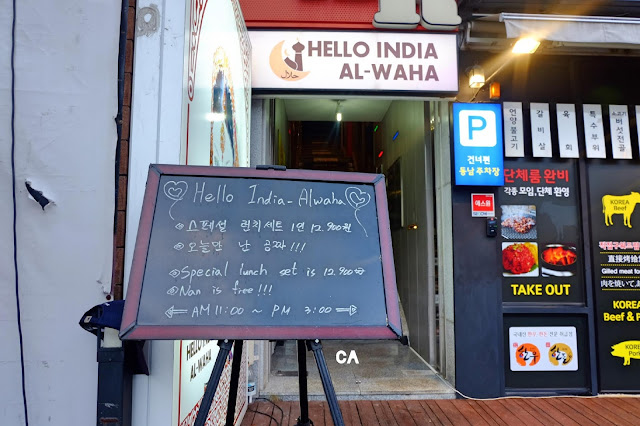 HELLO INDIA
AL-WAHA
حلال
Hello India-Alwaha
스페셜 런치세트 1인 12.900원
오늘만 난 공짜!!!
Special lunch set is 12.900원
Nan is free!!!
AM 11:00 ~ PM 3:00
CA
HELLO IN
AL-WAHA
P
건너편
동남 주차장
언양불고기
갈비살
육회
특수부위
버섯전골
단체룸 완비
각종 모임, 단체 환영
TAKE OUT
에스원
KOREA
Beef
直接烤给
Gilled meat fo
肉を焼いて
KOREA
Beef & P
KOREA
Pork